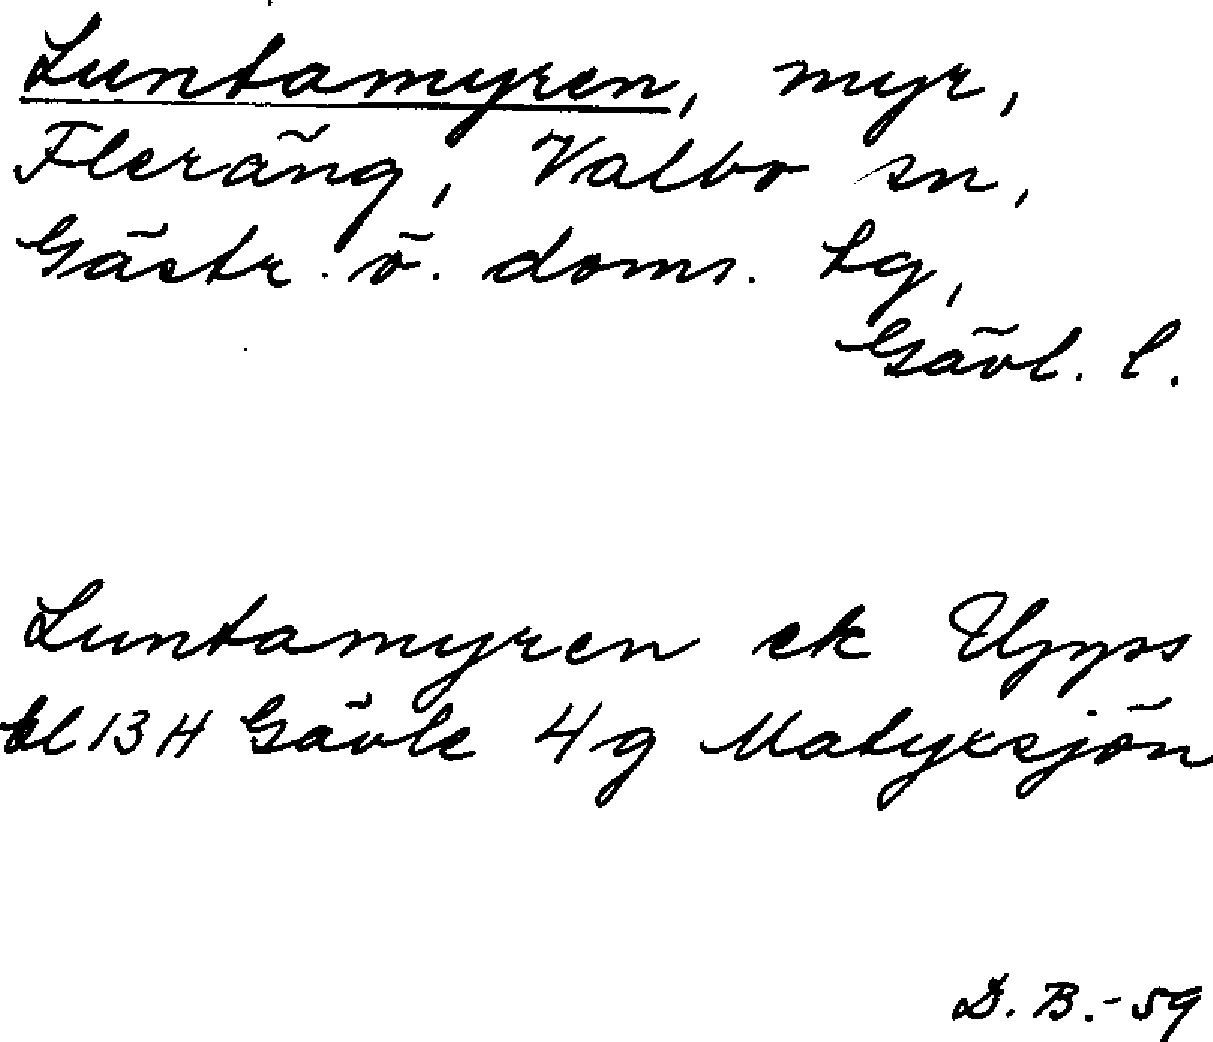 Luntamyren, myr,
Fleräng, Valbo sn,
Gästr. ö. doms. tg,
Gävl. l.
Luntamyren ek Upps
bl 13 H Gävle 4 g Matyxsjön
D. B.-59